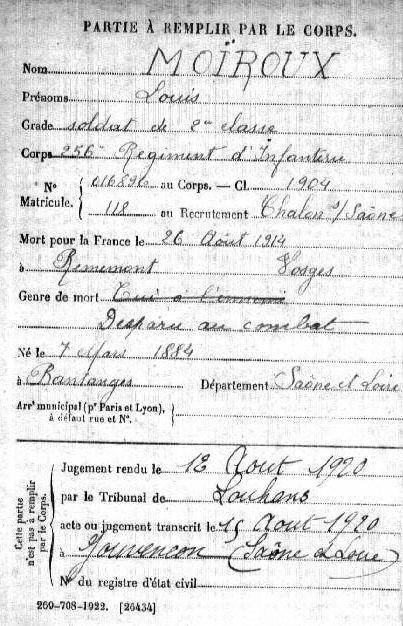 PARTIE À REMPLIR PAR LE CORPS.
Nom MOÏROUX
Prénoms Louis
Grade soldat de 2me classe
Corps 256e Régiment d'Infanterie
N° Matricule. 016896 au Corps. — Cl. 1904
118 au Recrutement Chalon s/ Saône
Mort pour la France le 26 Août 1914
à Remémont Vosges
Genre de mort Tué à l'ennemi
Disparu au combat
Né le 7 Mars 1884
à Bantanges Département Saône et Loire
Arrt municipal (pr Paris et Lyon),
à défaut rue et N°.
Cette partie n'est pas à remplir par le Corps.
Jugement rendu le 12 Août 1920
par le Tribunal de Louhans
acte ou jugement transcrit le 15 Août 1920
à Jouvençon (Saône et Loire)
N° du registre d'état civil
260-708-1922. [26434]